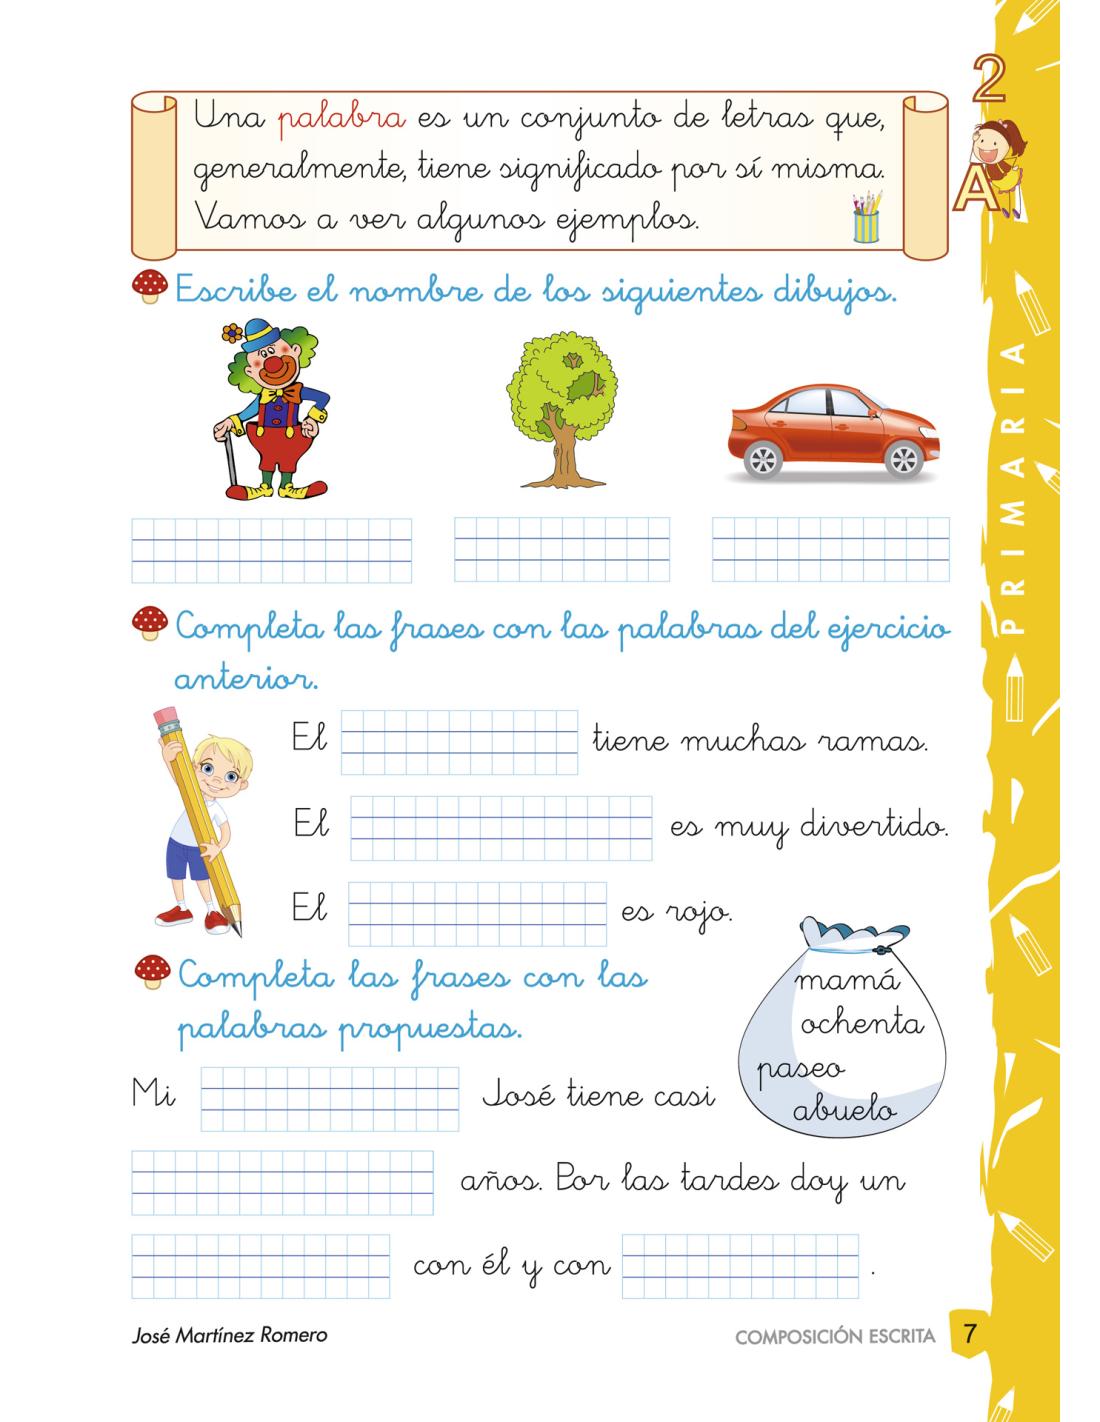 2
A
PRIMARIA
Una palabra es un conjunto de letras que,
generalmente, tiene significado por sí misma.
Vamos a ver algunos ejemplos.
Escribe el nombre de los siguientes dibujos.
Completa las frases con las palabras del ejercicio
anterior.
El tiene muchas ramas.
El es muy divertido.
El es rojo.
Completa las frases con las
palabras propuestas.
mamá
ochenta
paseo
abuelo
Mi José tiene casi
años. Por las tardes doy un
con él y con .
José Martínez Romero
COMPOSICIÓN ESCRITA 7